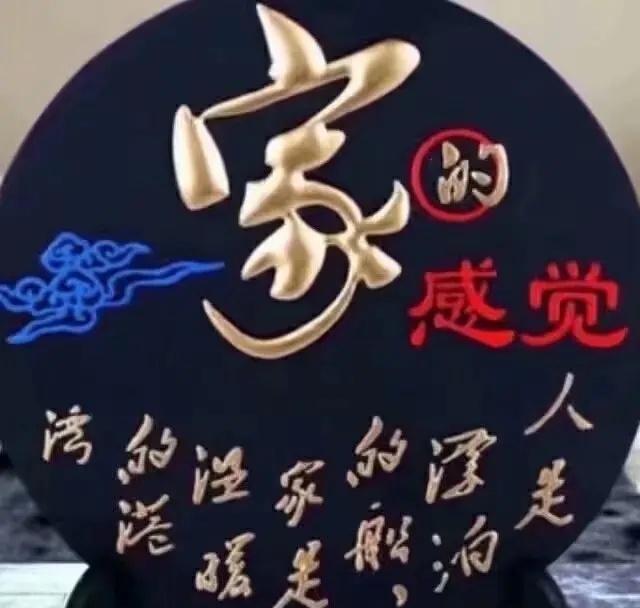 家的
感觉
人是
漂泊
的船，
家是
温暖
的港
湾